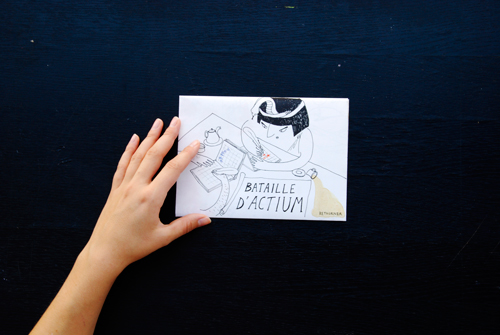 BATAILLE
D'ACTIUM